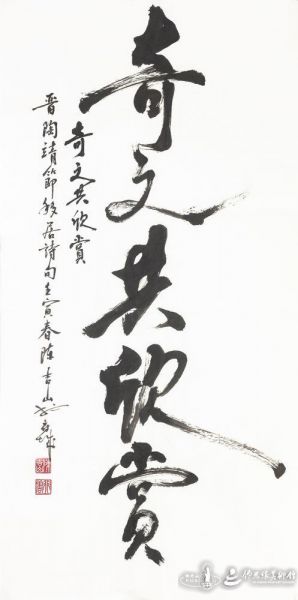 奇文共欣賞
奇文共欣賞
晉陶靖節移居詩句壬寅春陳吉山